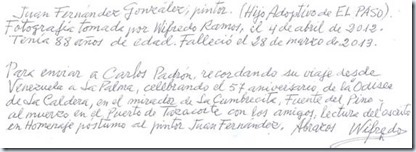 Juan Fernández González, pintor. (Hijo Adoptivo de EL PASO).
Fotografía tomada por Wifredo Ramos, el 4 de abril de 2012.
Tenía 88 años de edad. Falleció el 28 de marzo de 2013.
Para enviar a Carlos Paipón, recordando su viaje desde
Venezuela a La Palma, celebrando el 57 aniversario, de la Odisea
de La Caldera, en el mirador de La Cumbrecita, Fuente del Pino y
almuerzo en el Puerto de Tazacorte con los amigos, lectura del
en Homenaje póstumo al pintor Juan Fernández. Abrazos Wifredo